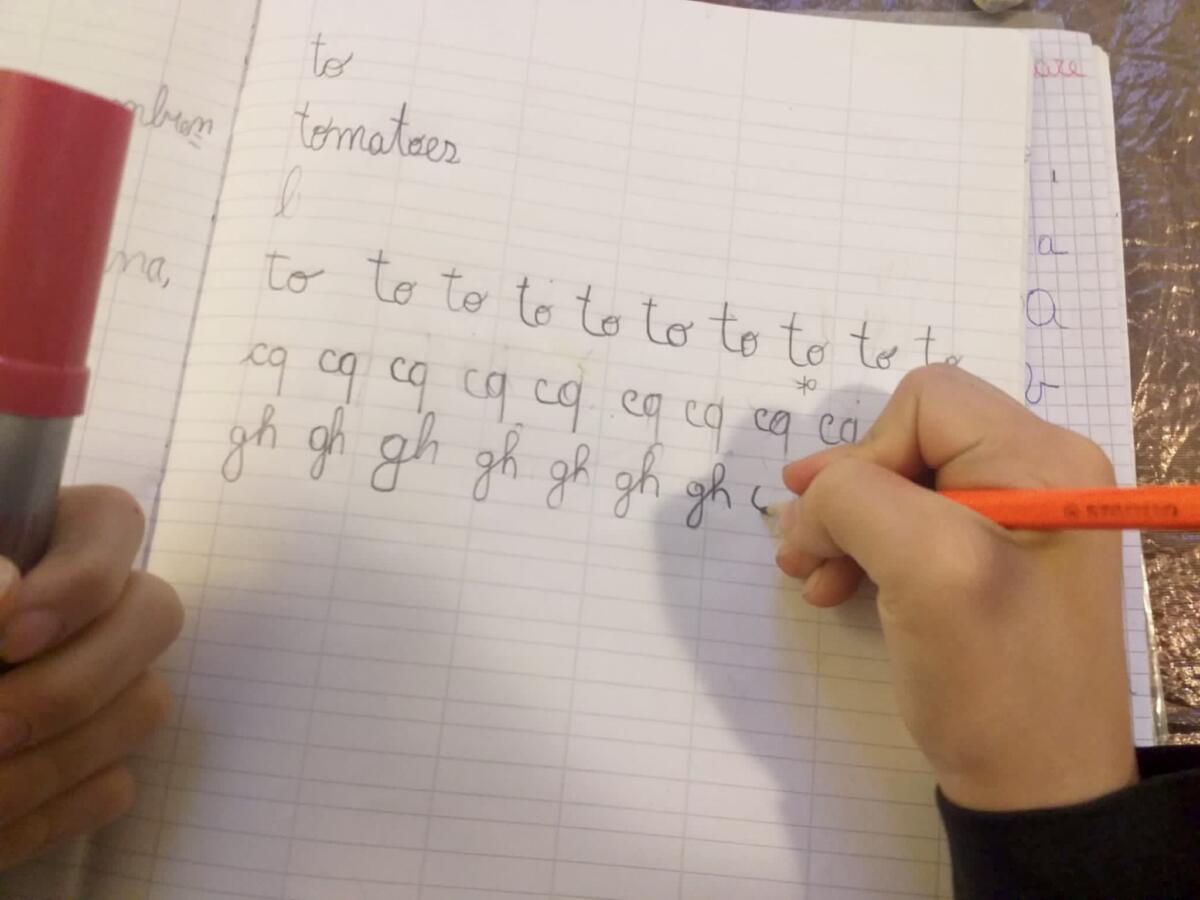 to
tomatoes
l
to to to to to to to to to to
cq cq cq cq cq cq cq cq cq
*
gh gh gh gh gh gh gh
na,
a
a
STABILO